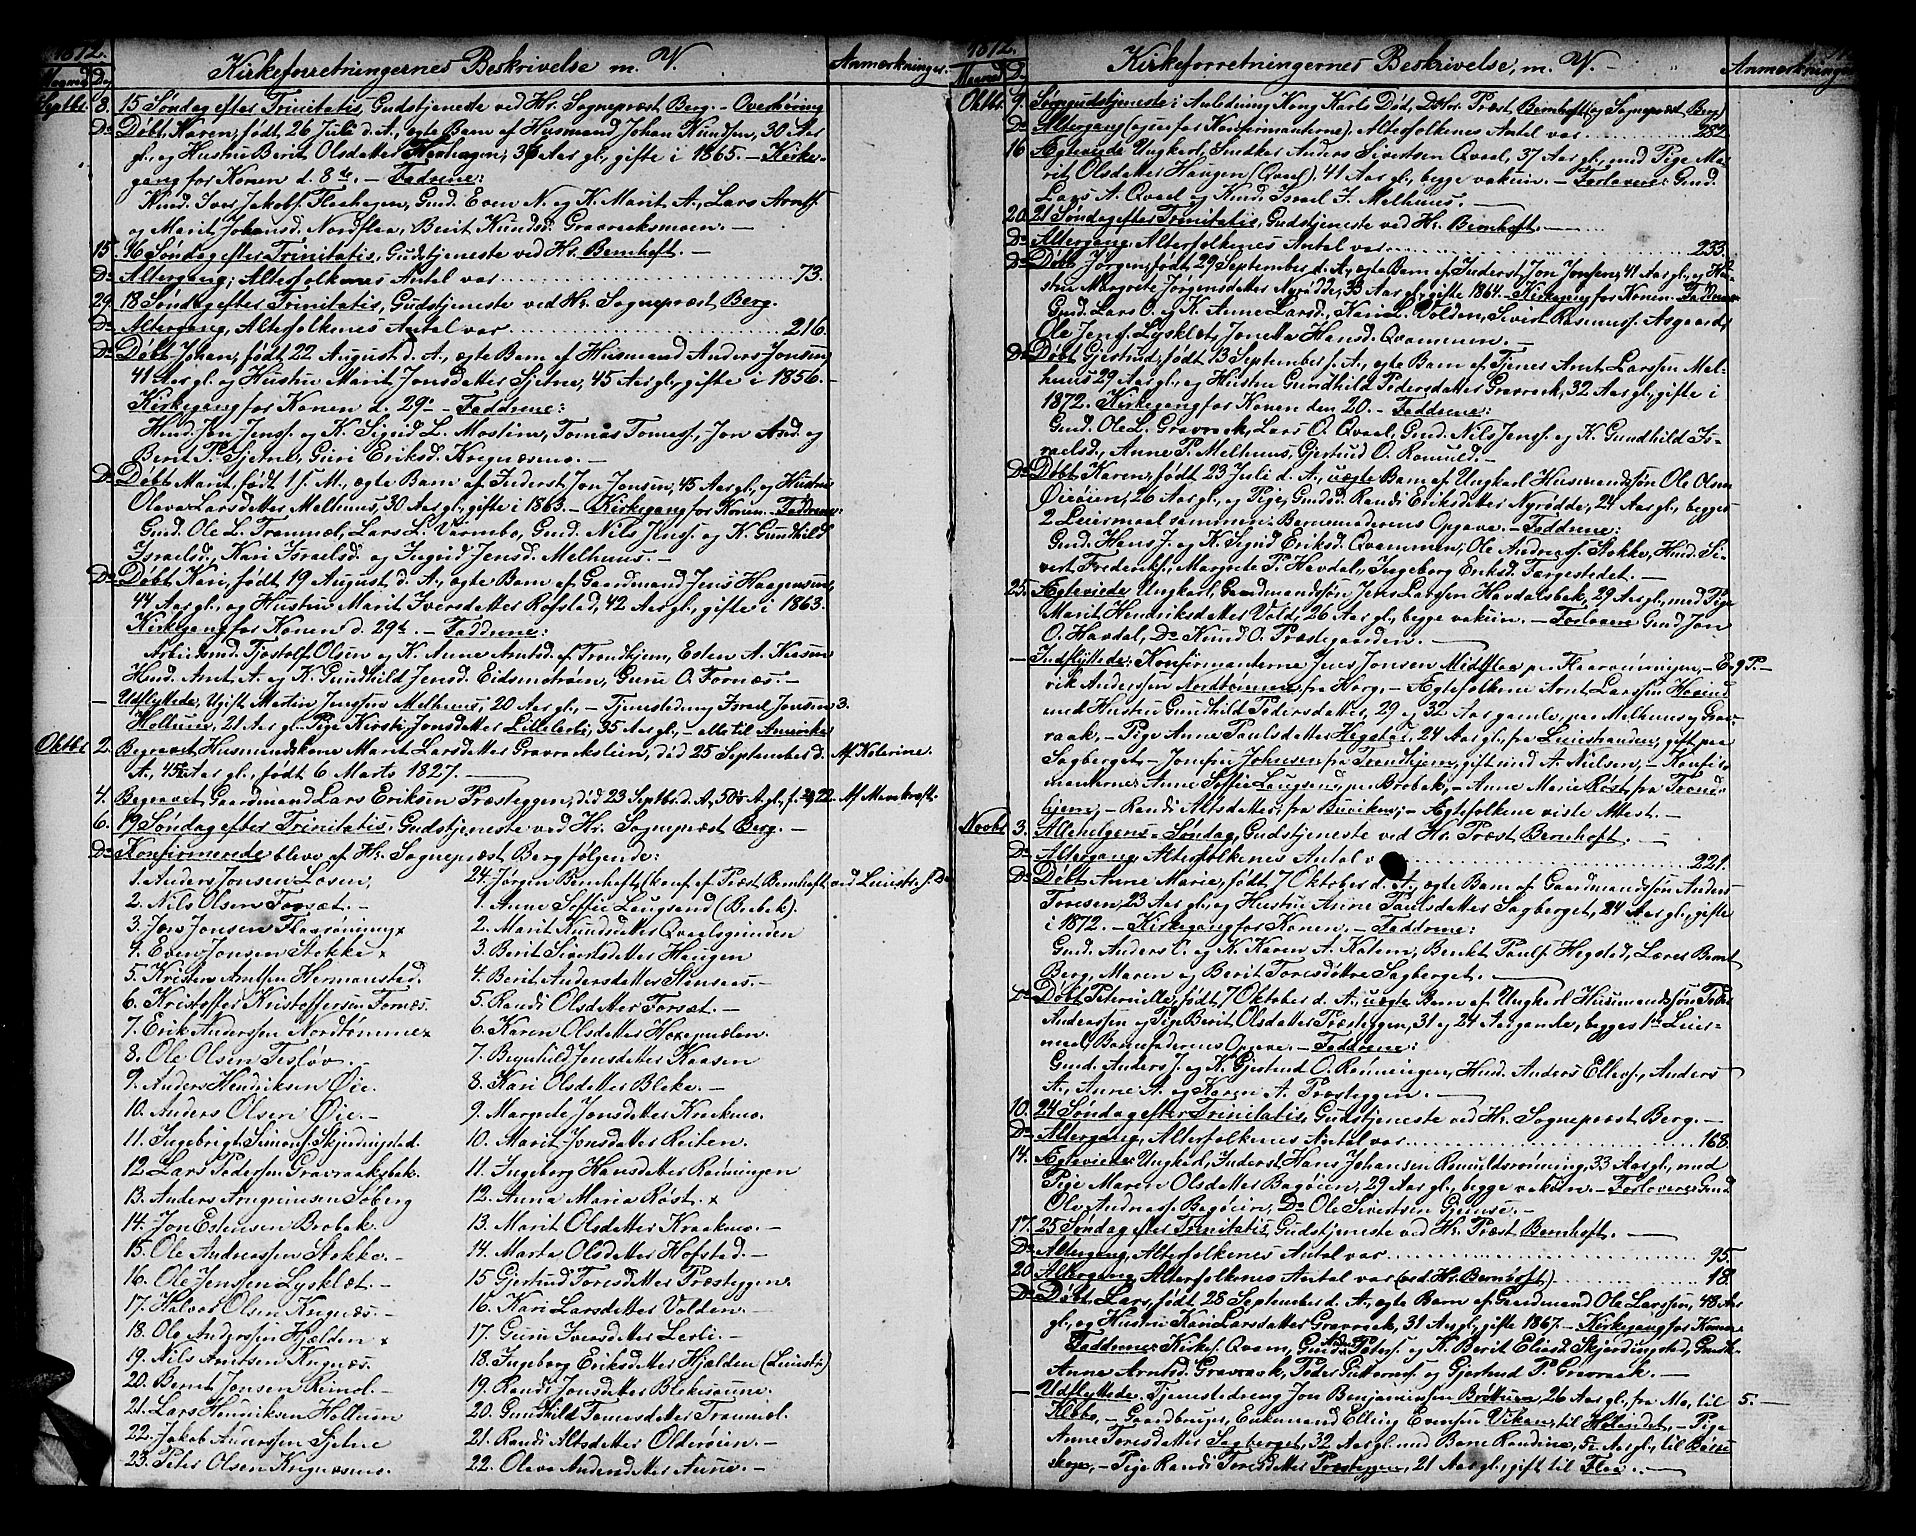 1872.
Kirkeforretningernes Beskrivelse m. V.
Anmerkninger.
Maaned Dag
Septbr. 8. 15 Søndag efter Trinitatis, Gudstjeneste ved Hr. Sognepræst Berg. - Overhøring
Do Døbt Karen, født 26 Juli d. A., ægte Barn af Husmand Johan Knudsen, 30 Aar
gl., og Hustru Berit Olsdatter Flaahagen, 36 Aar gl., gifte i 1865. - Kirke-
gang for Konen d. 8de. - Faddrene:
Husmd. Iver Jakobs. Flaahagen, Gmd. Even N. og K. Marit A., Lars Arntsf.
og Marit Johansd. Nordflaa, Berit Knudsd. Gravraaksmoen. -
15. 16 Søndag efter Trinitatis, Gudstjeneste ved Hr. Bernhoft. -
Do Altergang, Alterfolkenes Antal var 73.
29. 18 Søndag efter Trinitatis, Gudstjeneste ved Hr. Sognepræst Berg.
Do Altergang, Alterfolkenes Antal var 216.
Do Døbt Johan, født 22 August d. A., ægte Barn af Husmand Anders Jonsen
41 Aar gl. og Hustru Marit Jonsdatter Sjetne, 45 Aar gl., gifte i 1856. -
Kirkegang for Konen d. 29de - Faddrene:
Husmd. Jon Jensf. og K. Sigrid L. Mostine, Tomas Tomasf., Jon And. og
Berit P. Sjetne, Guri Eriksd. Krignæsmo. -
Do Døbt Marit, født 1 f. M., ægte Barn af Inderst Jon Jonsen, 45 Aar gl., og Hustru
Olava Larsdatter Melhuus, 30 Aar gl., gifte i 1863. - Kirkegang for Konen. Faddrene:
Gmd. Ole L. Trammel, Lars L. Varmbo, Gmd. Nils Jensf. og K. Gundhild
Israelsd., Kari Israelsd. og Ingrid Jensd. Melhuus. -
Do Døbt Kari, født 19 August d. A., ægte Barn af Gaardmand Jens Haagensen,
44 Aar gl., og Hustru Marit Iversdatter Rofstad, 42 Aar gl., gifte i 1863.
Kirkegang for Konen d. 29de. - Faddrene:
Arbeidsmd. Tjostolf Olsen og K. Anne Arntsd. af Trondhjem, Esten A. Kaasen
Husmd. Arnt A. og K. Gundhild Jensd. Eidsmstrøen, Guru O. Fornæs. -
- Udflyttede, Ugift Martin Jenssen Melhuus, 20 Aar gl., - Tjenestedreng Israel Jonsen 3.
Hollum, 21 Aar gl. Pige Kirsti Jonsdatter Lillelerli, 35 Aar gl., - alle til Amerika
Oktbr. 2. Begravet Husmandskone Marit Larsdatter Gravraaksleien, død 25 September d. Af Koterine.
A., 45½ Aar gl., født 6 Marts 1827. -
4. Begravet Gaardmand Lars Eriksen Præsteggen, død 23 Septbr. d. A., 50 A. gl., f. 1822. Af Mavekræft.
6. 19 Søndag efter Trinitatis, Gudstjeneste ved Hr. Sognepræst Berg. -
Do Konfirmerede blev af Hr. Sognepræst Berg følgende:
1. Anders Jonsen Løsen,
2. Nils Olsen Forsæt. -
3. Jens Jonsen Flaarønning x
4. Even Jonsen Stokke x
5. Kristen Arntsen Hermanstad.
6. Kristoffer Kristoffersen Fornæs.
7. Erik Anderssen Nordtømme x
8. Ole Olsen Tesløv. -
9. Anders Hendriksen Øie.
10. Anders Olsen Øie. -
11. Ingebrigt Simonf. Skjerdingstad.
12. Lars Pedersen Gravraaksbak.
13. Anders Arngrimsen Søberg
14. Jon Estensen Brobak.
15. Ole Andreassen Stokke. -
16. Ole Jensen Lysklæt. -
17. Halvor Olsen Krignæs. -
18. Ole Anderssen Hjælden x
19. Nils Arntsen Krignæs.
20. Bernt Jonsen Rimol. -
21. Lars Henriksen Hollum
22. Jakob Anderssen Sjetne
23. Peter Olsen Krignæsmo.
24. Jørgen Bernhoft (konf. af Præst Bernhoft ved Leinstr. f. D.
1. Anne Soffie Laugsand (Brobak).
2. Marit Knudsdatter Qvaalsgrinden
3. Berit Sivertsdatter Haugen
4. Berit Andersdatter Stensaas. -
5. Randi Olsdatter Forsæt. -
6. Karen Olsdatter Hoxgmælen.
7. Brynhild Jensdatter Kaasen
8. Kari Olsdatter Bleke. -
9. Margrete Jonsdatter Kraakmo.
10. Marit Jonsdatter Reiten.
11. Ingeborg Hansdatter Rønningen
12. Anna Maria Røst. x
13. Marit Olsdatter Kraakmo. -
14. Marta Olsdatter Hofstad. -
15. Gjertrud Toresdatter Præsteggen.
16. Kari Larsdatter Volden. -
17. Guru Iversdatter Lerli. -
18. Ingeborg Eriksdatter Hjælden (Leinstr.)
19. Randi Jonsdatter Bleksaune.
20. Gundhild Tomasdatter Trammel.
21. Randi Altsdatter Olderøien. -
22. Oleva Andersdatter Aune. -
1872.
Kirkeforretningernes Beskrivelse, m. V.
Anmerkninger
Maaned D.
Oktbr. 9. Sørgegudstjeneste i Anledning Kong Karls Død, D. Hrr. Præst Bernhoft (og Sognepræst Berg)
Do Altergang (ogsaa for Konfirmanterne). Alterfolkenes Antal var 287.
16 Ægteviede Ungkarl, Snedker Anders Sivertsen Qvaal, 37 Aar gl., med Pige Ma-
rit Olsdatter Haugen (Qvaal), 41 Aar gl., begge vakcin. - Forlovere: Gmd.
Lars A. Qvaal og Kmd. Israel J. Melhuus. -
20. 21 Søndag efter Trinitatis, Gudstjeneste ved Hr. Bernhoft. -
Do Altergang, Alterfolkenes Antal var 233.
Do Døbt Jørgen, født 29 September d. A., ægte Barn af Inderst Jon Jonsen, 41 Aar gl., og Hu-
stru Margrete Jørgensdatter Nyrødde, 33 Aar gl., gifte 1864. - Kirkegang for Konen. Faddrene:
Gmd. Lars O. og K. Anne Larsd., Karen L. Volden, Sivert Rasmusf. Aasgaard,
Ole Jensf. Lysklæt, Jonetta Hansd. Qvammen. -
Do Døbt Gjertrud, født 13 September f. A., ægte Barn af Tjener Arnt Larssen Mel-
huus 29 Aar gl., og Hustru Gundhild Pedersdatter Gravraak, 32 Aar gl., gifte i
1872. Kirkegang for Konen den 20. - Faddrene:
Gmd. Ole L. Gravraak, Lars O. Qvaal, Gmd. Nils Jensf. og K. Gundhild Is-
raelsd., Anne P. Melhuus, Gjertrud O. Romuld. -
Do Døbt Karen, født 23 Juli d. A., uægte Barn af Ungkarl Husmandssøn Ole Olsen
Øierøien, 26 Aar gl., og Pige, Gmdsd. Randi Eriksdatter Nyrødde, 24 Aar gl., begges
2 Leiermaal sammen. Barnemoderens Opgave. - Faddrene:
Gmd. Hans J. og K. Sigrid Eriksd. Qvammen, Ole Andreasf. Stokke, Husmd. Si-
vert Frederiksf., Margrete P. Havdal, Ingeborg Eriksd. Færgestedet. -
25. Ægteviede Ungkarl, Gaardmandssøn Jens Larssen Havdalsbak, 29 Aar gl., med Pige
Marit Hendriksdatter Vold, 26 Aar gl., begge vakcin. - Forlovere Gmd. Jon
O. Havdal, Do Knud O. Præstegaarden. -
- Indflyttede: Konfirmanterne Jens Jonsen Midtflaa paa Flaarønningen, - E. g. P. -
rik Anderssen Nordtømmen fra Horg, - Ægtefolkene Arnt Larssen Hovind
med Hustru Gundhild Pedersdatter, 29 og 32 Aar gamle, paa Melhuus og Grav-
raak, - Pige Anne Paulsdatter Hegstad, 24 Aar gl., fra Leinstranden, gift paa
Sagberget, - Jomfru Johnsen fra Trondhjem, gift med A. Nielsen, - Konfir-
manterne: Anne Soffie Laugsand, paa Brobak, - Anne Marie Røst, fra Trond-
hjem, - Randi Altsdatter, fra Buviken, - Ægtefolkene viste Attest. -
Novbr. 3. Allehelgens-Søndag, Gudstjeneste ved Hr. Præst Bernhoft. -
Do Altergang, Alterfolkenes Antal var 221.
Do Døbt Anne Marie, født 7 Oktober d. A., ægte Barn af Gaardmandssøn Anders
Toresen, 23 Aar gl., og Hustru Anne Paulsdatter Sagberget, 24 Aar gl., gifte
i 1872. - Kirkegang for Konen. - Faddrene:
Gmd. Anders O. og K. Karen A. Kalem, Benkt Paulf. Hegstad, Lærer Bernt
Berg, Maren og Berit Toresdøtre Sagberget. -
Do Døbt Peternille, født 7 Oktober d. A., uægte Barn af Ungkarl Husmandssøn Peder
Anderssen og Pige Berit Olsdatter Præsteggen, 31 og 24 Aar gamle, begges 1ste Leier-
maal, Barnefaderens Opgave. - Faddrene:
Gmd. Anders J. og K. Gjertrud O. Rønningen, Husmd. Anders Ellevf., Anders
A., Anne A. og Karen A. Præsteggen. -
10. 24 Søndag efter Trinitatis, Gudstjeneste ved Hr. Sognepræst Berg. -
Do Altergang, Alterfolkenes Antal var 168.
14. Ægteviede: Ungkarl, Inderst Hans Johansen Romuldsrønning, 33 Aar gl., med
Pige Maren Olsdatter Bagøien, 29 Aar gl., begge vakcin. - Forlovere: Gmd.
Ole Andreasf. Bagøien, Do Ole Sivertsen Gjemse. -
17. 25 Søndag efter Trinitatis, Gudstjeneste ved Hr. Præst Bernhoft. -
Do Altergang, Alterfolkenes Antal var 95.
20. Altergang, Alterfolkenes Antal var (ved Hr. Bernhoft) 18.
Do Døbt Lars, født 28 September d. A., ægte Barn af Gaardmand Ole Larssen, 48 Aar
gl., og Hustru Kari Larsdatter Gravraak, 31 Aar gl., gifte 1867. - Kirkegang for Konen.
Faddrene: Kirkes. Qvam, Gmd. Anders Petersf. og K. Berit Eliasd. Skjerdingstad, Gmdk.
Anne Arntsd. Gravraak, Peder Pettersf. og Gjertrud P. Gravraak. -
- Udflyttede. Tjenestedreng Jon Benjaminsen Brøttum, 26 Aar gl., fra Mo, til 5. -
Klæbo, - Gaardbruger, Enkemand Elling Evensen Viken, til Hølandet, - Pige
Anne Toresdatter Sagberget, 32 Aar gl. med Barn Randine, til
- Pige Randi Toresdatter Præsteggen, 21 Aar gl., gift til Flaa. -